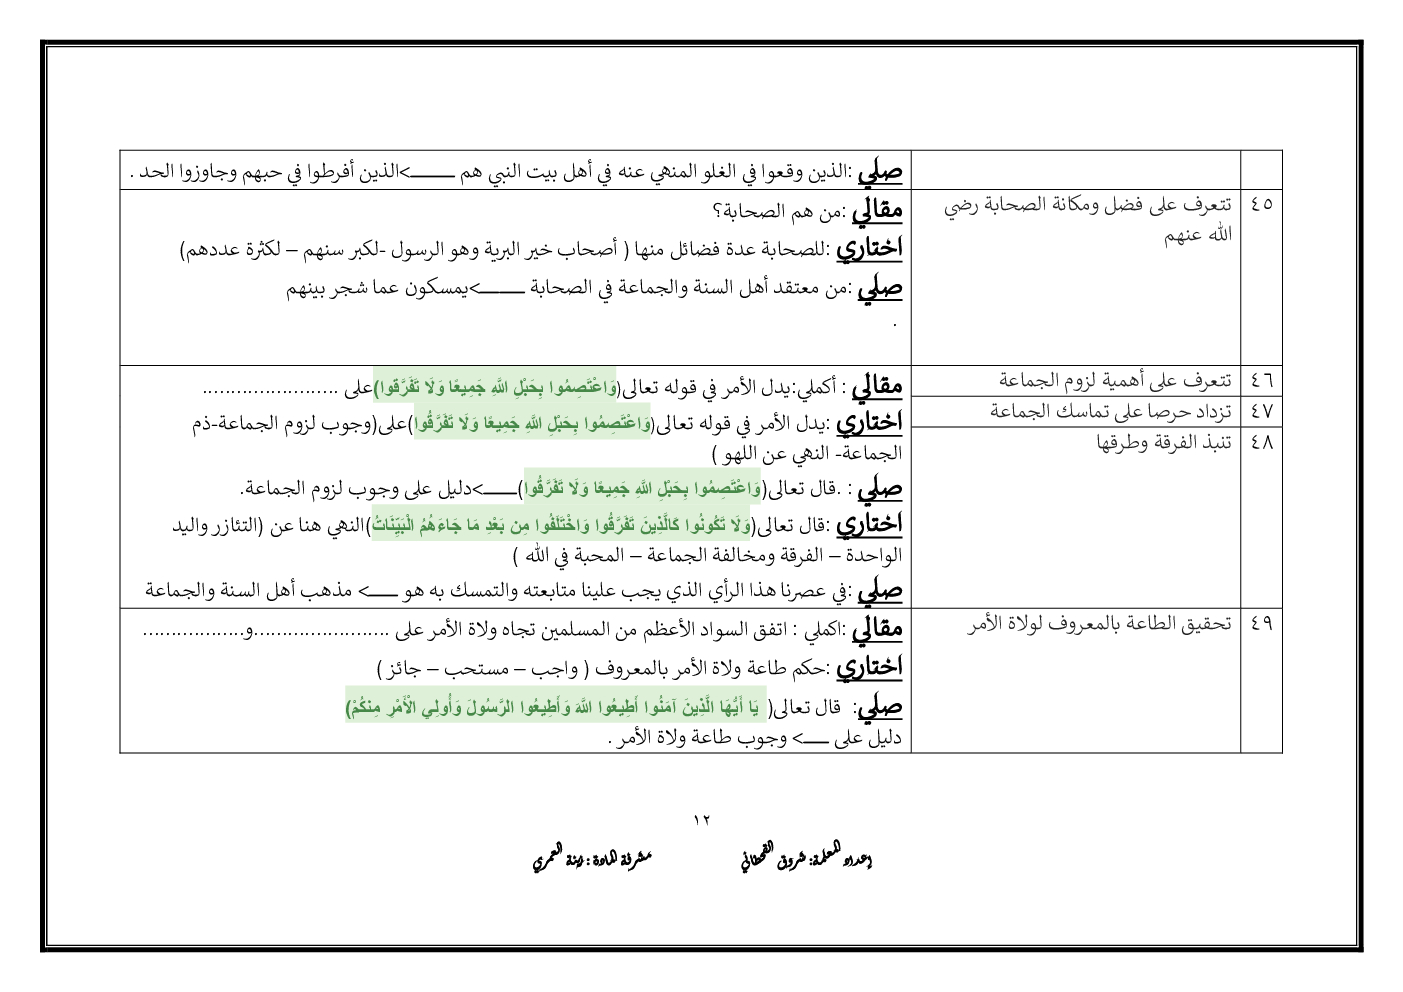 صلي :الذين وقعوا في الغلو المنهي عنه في أهل بيت النبي هم ــــــــ>الذين أفرطوا في حبهم وجاوزوا الحد .
٤٥
تتعرف على فضل ومكانة الصحابة رضي
الله عنهم
مقالي :من هم الصحابة؟
اختاري :للصحابة عدة فضائل منها ( أصحاب خير البرية وهو الرسول -لكبر سنهم – لكثرة عددهم)
صلي :من معتقد أهل السنة والجماعة في الصحابة ــــــــ>يمسكون عما شجر بينهم
.
٤٦
تتعرف على أهمية لزوم الجماعة
٤٧
تزداد حرصا على تماسك الجماعة
٤٨
تنبذ الفرقة وطرقها
مقالي : أكملي:يدل الأمر في قوله تعالى(وَاعْتَصِمُوا بِحَبْلِ اللَّهِ جَمِيعًا وَلَا تَفَرَّقوا)على ........................
اختاري :يدل الأمر في قوله تعالى(وَاعْتَصِمُوا بِحَبْلِ اللَّهِ جَمِيعًا وَلَا تَفَرَّقُوا)على(وجوب لزوم الجماعة-ذم
الجماعة- النهي عن اللهو )
صلي : .قال تعالى(وَاعْتَصِمُوا بِحَبْلِ اللَّهِ جَمِيعًا وَلَا تَفَرَّقُوا)ــــــ>دليل على وجوب لزوم الجماعة.
اختاري :قال تعالى(وَلَا تَكُونُوا كَالَّذِينَ تَفَرَّقُوا وَاخْتَلَفُوا مِن بَعْدِ مَا جَاءَهُمُ الْبَيِّنَاتُ)النهي هنا عن (التئازر واليد
الواحدة – الفرقة ومخالفة الجماعة – المحبة في الله )
صلي :في عصرنا هذا الرأي الذي يجب علينا متابعته والتمسك به هو ـــــ> مذهب أهل السنة والجماعة
٤٩
تحقيق الطاعة بالمعروف لولاة الأمر
مقالي :اكملي : اتفق السواد الأعظم من المسلمين تجاه ولاة الأمر على ........................و..................
اختاري :حكم طاعة ولاة الأمر بالمعروف ( واجب – مستحب – جائز )
صلي: قال تعالى( يَا أَيُّهَا الَّذِينَ آمَنُوا أَطِيعُوا اللَّهَ وَأَطِيعُوا الرَّسُولَ وَأُولِي الْأَمْرِ مِنكُمْ)
دليل على ـــــ> وجوب طاعة ولاة الأمر .
١٢
إعداد المعلمة: شروق القحطاني مشرفة المادة : نبيلة العمري